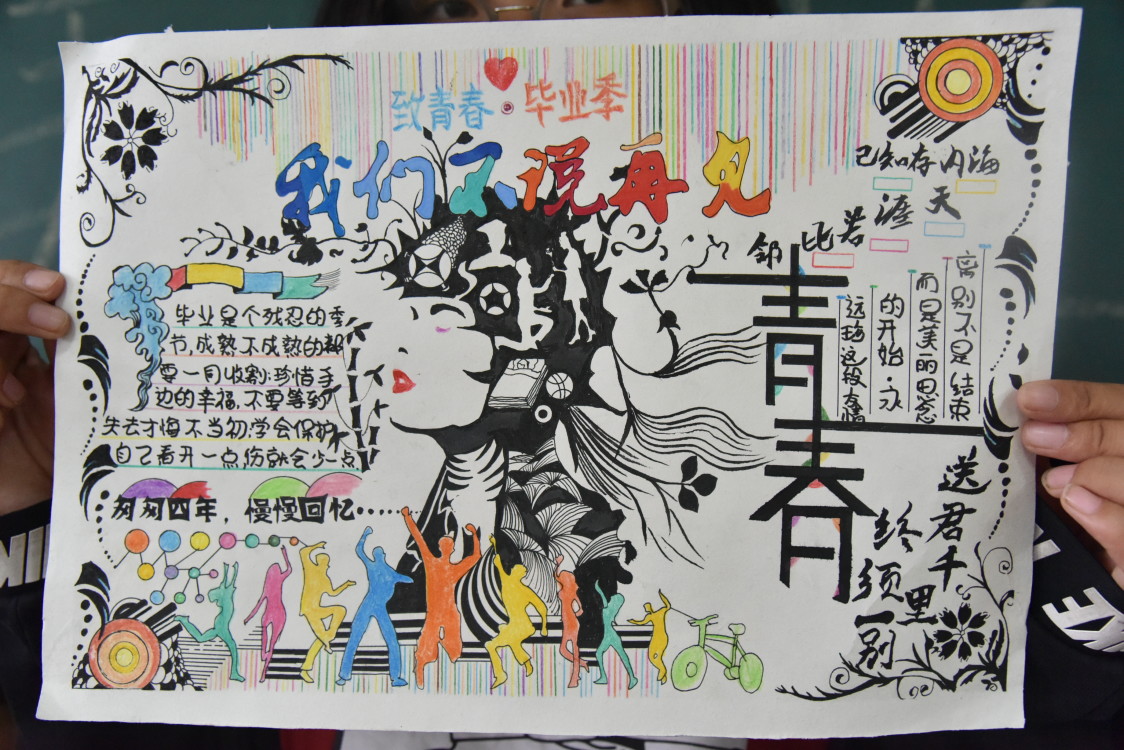 致青春·毕业季
我们不说再见
毕业是个残忍的季
节,成熟不成熟的都
要一同收割:珍惜手
边的幸福,不要等到
失去才悔不当初:学会保护
自己看开一点,伤就会少一点
匆匆四年，慢慢回忆……
海内存知己
天涯
若比邻
青春
离别不是结束
而是美丽思念
的开始·永
远珍这级友情
送君千里
终须一别